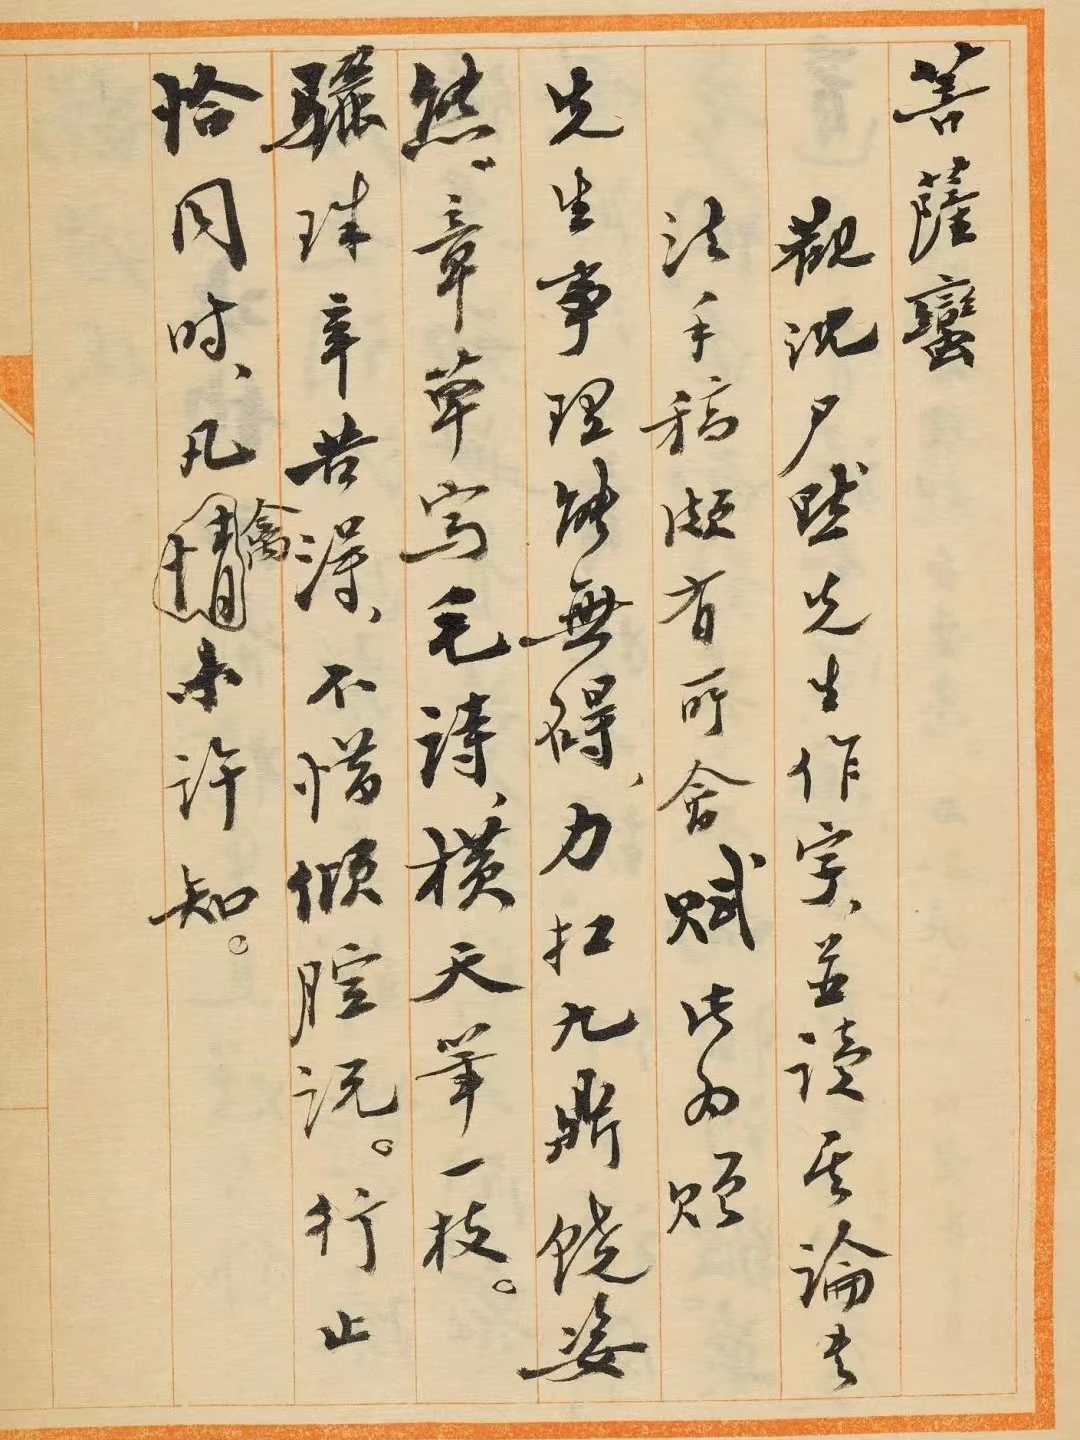 菩薩蠻
觀沈尹默先生作字、並讀其論书
法手稿頗有所會賦此为贈
先生事理能無碍、力扛九鼎饒姿
態、章草寫毛詩、橫天筆一枝。
驪珠辛苦得、不惜傾腔説。行止
恰同时、凡禽未許知。